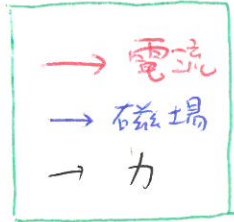 → 電流
→ 磁場
→ 力